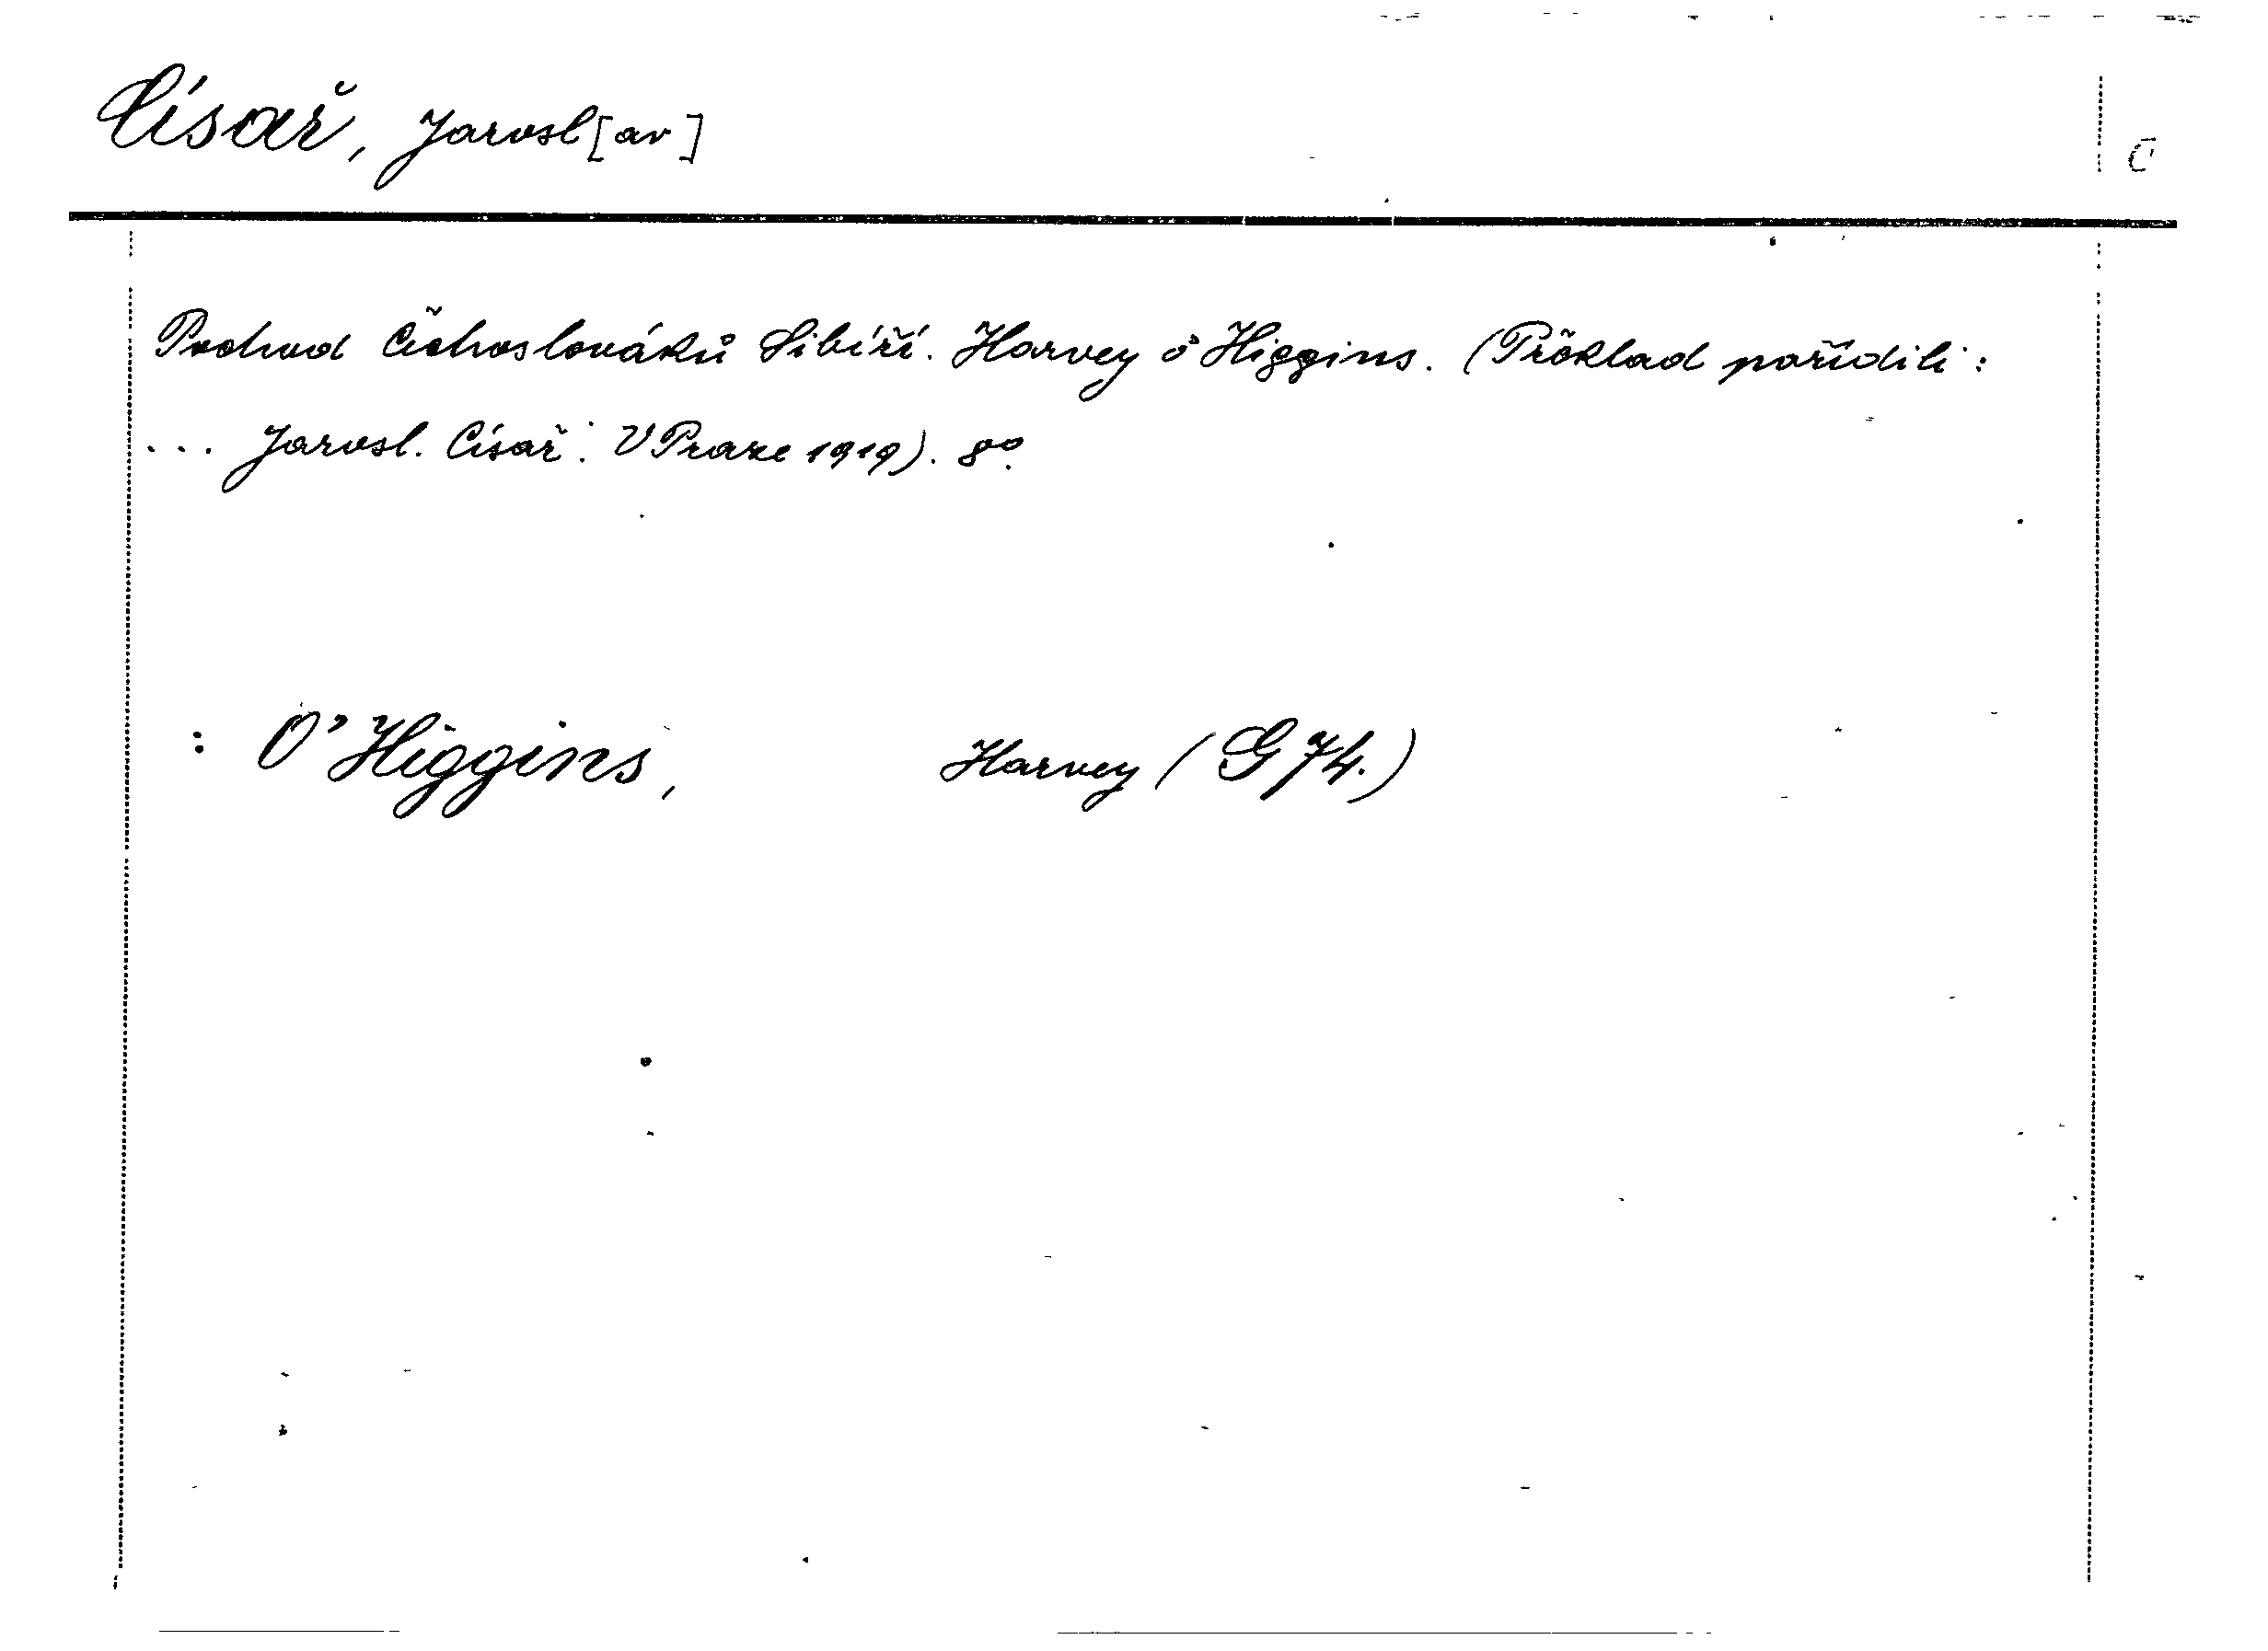 Císař, Jarosl[av]
C
Pochod Čechoslováků Sibíří. Harvey o' Higgins. (Překlad pořídili:
... Jarosl. Císař. V Praze 1919). 8°.
: O'Higgins, Harvey (G 74.)